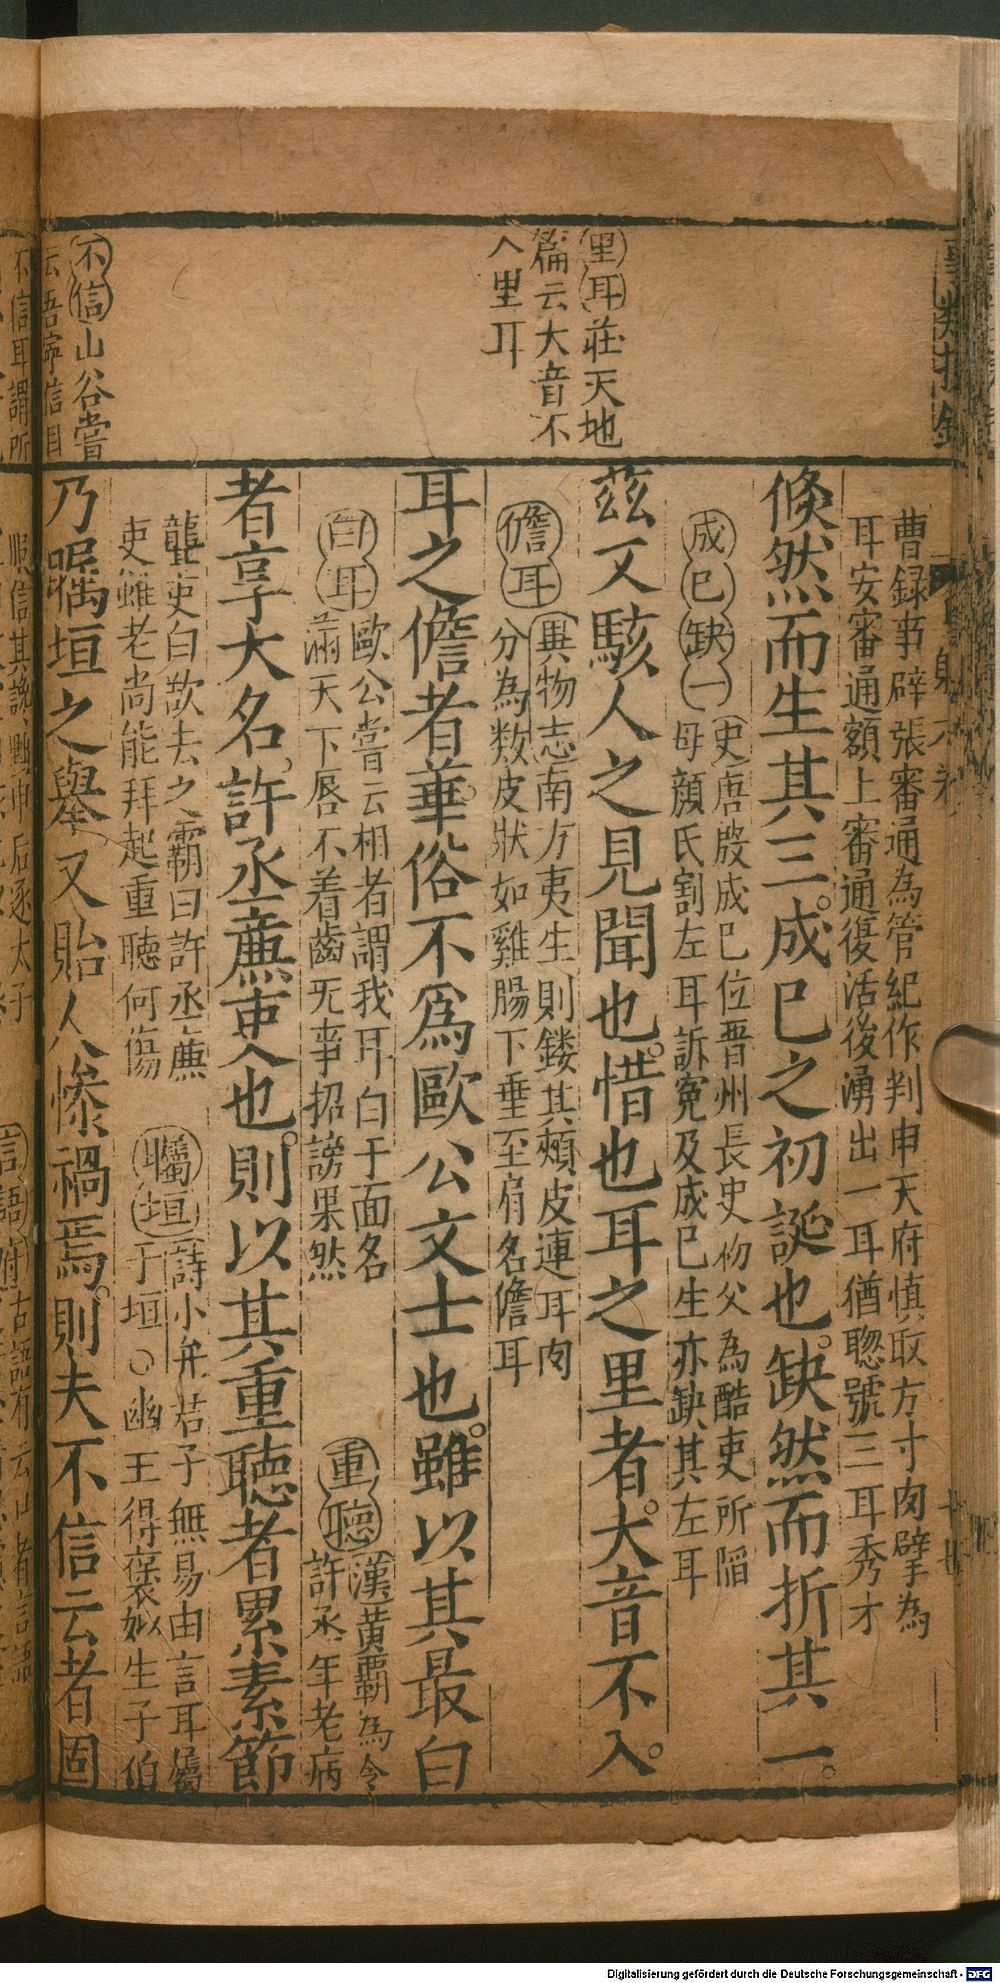 里耳莊天地
篇云大音不
入里耳
不信山谷嘗
云吾寜信目
曹録事辟張審通為管紀作判申天府慎取方寸肉擘為
耳安審通額上審通復活後湧出一耳猶聰號三耳秀才
倐然而生其三。成巳之初誕也。缺然而折其一。
成巳缺一史唐殷成巳位晋州長史初父為酷吏所陷
母顔氏割左耳訴寃及成巳生亦缺其左耳
茲又駭人之見聞也。惜也耳之里者。大音不入。
儋耳異物志南方夷生則鏤其頰皮連耳肉
分為数皮狀如雞腸下垂至肩名儋耳
耳之儋者。華俗不爲歐公文士也。雖以其最白
白耳歐公嘗云相者謂我耳白于面名
滿天下唇不着齒无事招謗果然
重聽漢黃霸為令
許丞年老病
者享大名。許丞亷吏也。則以其重聴者累素節
聾吏白欲去之霸曰許丞亷
吏雖老尚能拜起重聽何傷
囑垣詩小弁君子無易由言耳屬
于垣○幽王得褒姒生子伯
乃囑垣之舉。又貽人慘禍焉。則夫不信云者固
不信耳謂所